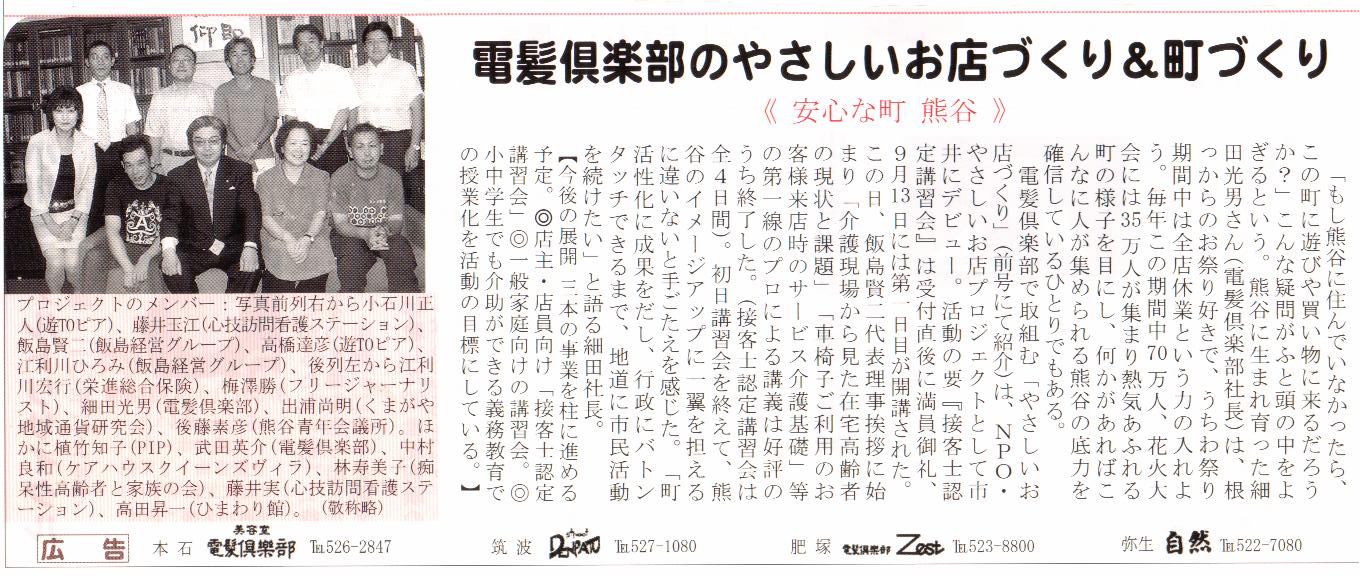 仰即
電髪倶楽部のやさしいお店づくり&町づくり
《 安心な町 熊谷 》
「もし熊谷に住んでいなかったら、
この町に遊びや買い物に来るだろう
か?」こんな疑問がふと頭の中をよ
ぎるという。熊谷に生まれ育った細
田光男さん(電髪倶楽部社長)は、根
っからのお祭り好きで、うちわ祭り
期間中は全店休業という力の入れよ
う。毎年この期間中70万人、花火大
会には35万人が集まり熱気あふれる
町の様子を目にし、何かがあればこ
んなに人が集められる熊谷の底力を
確信しているひとりでもある。
電髪倶楽部で取組む「やさしいお
店づくり」(前号にて紹介)は、NPO・
やさしいお店プロジェクトとして市
井にデビュー。活動の要『接客士認
定講習会』は受付直後に満員御礼、
9月13日には第一日目が開講された。
この日、飯島賢二代表理事挨拶に始
まり「介護現場から見た在宅高齢者
の現状と課題」「車椅子ご利用のお
客様来店時のサービス介護基礎」等
の第一線のプロによる講義は好評の
うち終了した。(接客士認定講習会は
全4日間)。初日講習会を終えて、熊
谷のイメージアップに一翼を担える
に違いないと手ごたえを感じた。「町
活性化に成果をだし、行政にバトン
タッチできるまで、地道に市民活動
を続けたい」と語る細田社長。
【今後の展開 三本の事業を柱に進める
予定。◎店主・店員向け「接客士認定
講習会」◎一般家庭向けの講習会。◎
小中学生でも介助ができる義務教育で
の授業化を活動の目標にしている。】
プロジェクトのメンバー:写真前列右から小石川正
人(遊TOピア)、藤井玉江(心技訪問看護ステーション)、
飯島賢二(飯島経営グループ)、高橋達彦(遊TOピア)、
江利川ひろみ(飯島経営グループ)、後列左から江利
川宏行(栄進総合保険)、梅澤勝(フリージャーナリ
スト)、細田光男(電髪倶楽部)、出浦尚明(くまがや
地域通貨研究会)、後藤素彦(熊谷青年会議所)。ほ
かに植竹知子(PIP)、武田英介(電髪倶楽部)、中村
良和(ケアハウスクイーンズヴィラ)、林寿美子(痴
呆性高齢者と家族の会)、藤井実(心技訪問看護ステ
ーション)、高田昇一(ひまわり館)。 (敬称略)
広告 本石 美容室 電髪倶楽部 ℡526-2847 筑波 DENPATO ℡527-1080 肥塚 電髪倶楽部 Zest ℡523-8800 弥生 自然 ℡522-7080